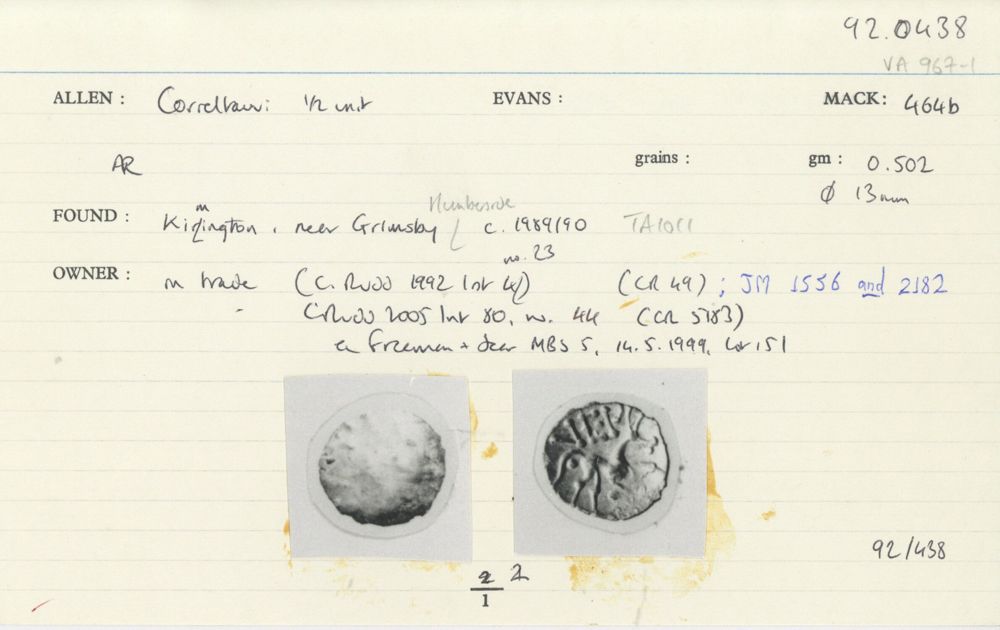 92.0438
VA 967-1
ALLEN : Correltauvi 1/2 unit EVANS : MACK: 464b
AR grains : gm : 0.502
ϕ 13mm
FOUND : Kirmington, near Grimsby Humberside c. 1989/90 TA1011
no. 23
OWNER : in trade (C. Rudd 1992 list 4) (CR 49) ; JM 1556 and 2182
C Rudd 2005 list 80, no. 44 (CR 5183)
ex Freeman + Sear MBS 5, 14.5.1999, lot 151
NEMC
92/438
2 2
1